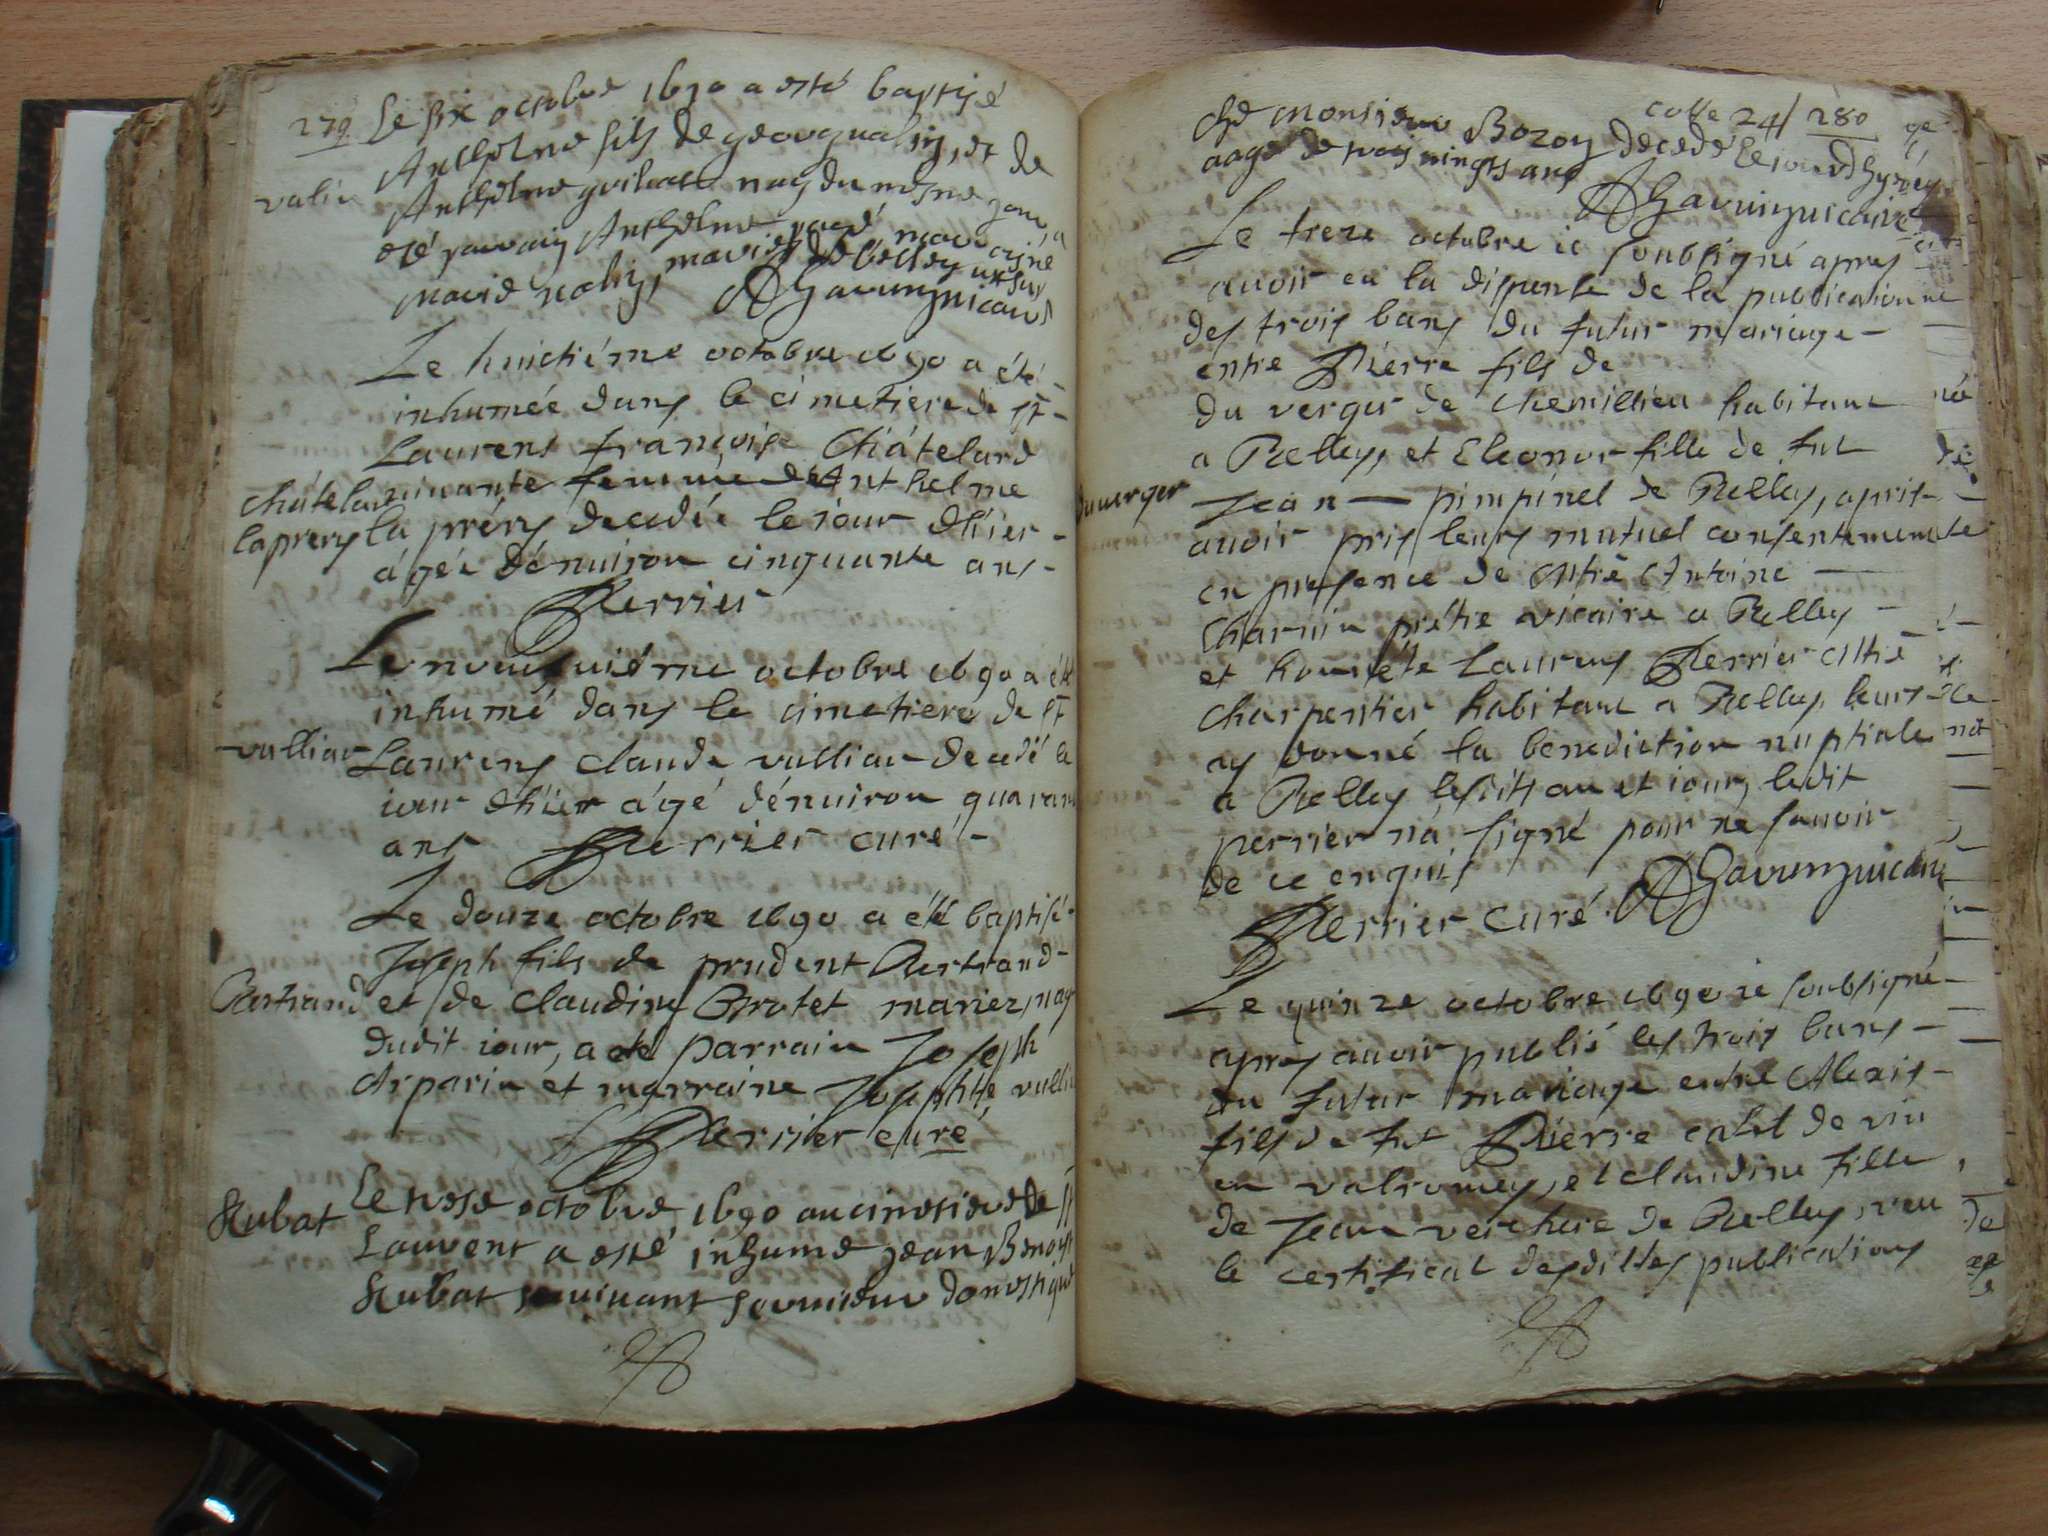 279 Le six octobre 1690 a esté baptisé
Anthelme fils de George valin, et de
valin
Anthelme nay du mesme jour, a
esté parrain Anthelme
marie valin, mariez de belley
Le huictiéme octobre 1690 a été
inhumée dans le cimetiere de St
Laurens françoise Châtelard
châtelard vivante femme de Anthelme
laprery la prery decedée le iour d'hier
âgée d'énuiron cinquante ans
Perrier
Le neufuiéme octobre 1690 a été
inhumé dans le cimetiere de St
vulliau Laurens claude vulliau decedé le
iour d'hier âgé d'énuiron quarante
ans Perrier curé
Le douze octobre 1690 a été baptisé
Joseph fils de prudent Bertrand
Bertrand et de claudine Brotet mariez nay
dudit iour, a eté parrain Joseph
Arparin et marraine Josephte
Perrier curé
Hubat Le trese octobre 1690 au cimetiere de St
Laurent a esté inhumé Jean Benoist
Hubat vivant serviteur domestique
cotte 24 280
ché Monsieur Bozon decedé le iour d'hyer
aagé de trois vingts ans
Le treze octobre ie soubsigné apres
auoir eu la dispense de la publication
des trois bans du futur mariage
entre Pierre fils de
du verger de chemillieu habitant
a Belley, et Eleonor fille de fut
du verger Jean pimpinel de Belley, apres
auoir pris leurs mutuel consentement
en presence de Mtre Antoine
Charvin prétre vicaire a Belley
et honnéte Laurens Perrier Mtre
charpentier habitant a Belley, leurs
ay donné la benediction nuptiale
a Belley lesdits an et iour, ledit
perrier n'a signé pour ne sauoir
de ce enquis
Perrier curé
Le quinze octobre 1690 ie soubsigné
apres auoir publié les trois bans
du futur mariage entre Alexis
fils de fut Pierre de viu
en valromey, et claudine fille
de Jean verchere de Belley, veu
le certificat desdittes publications